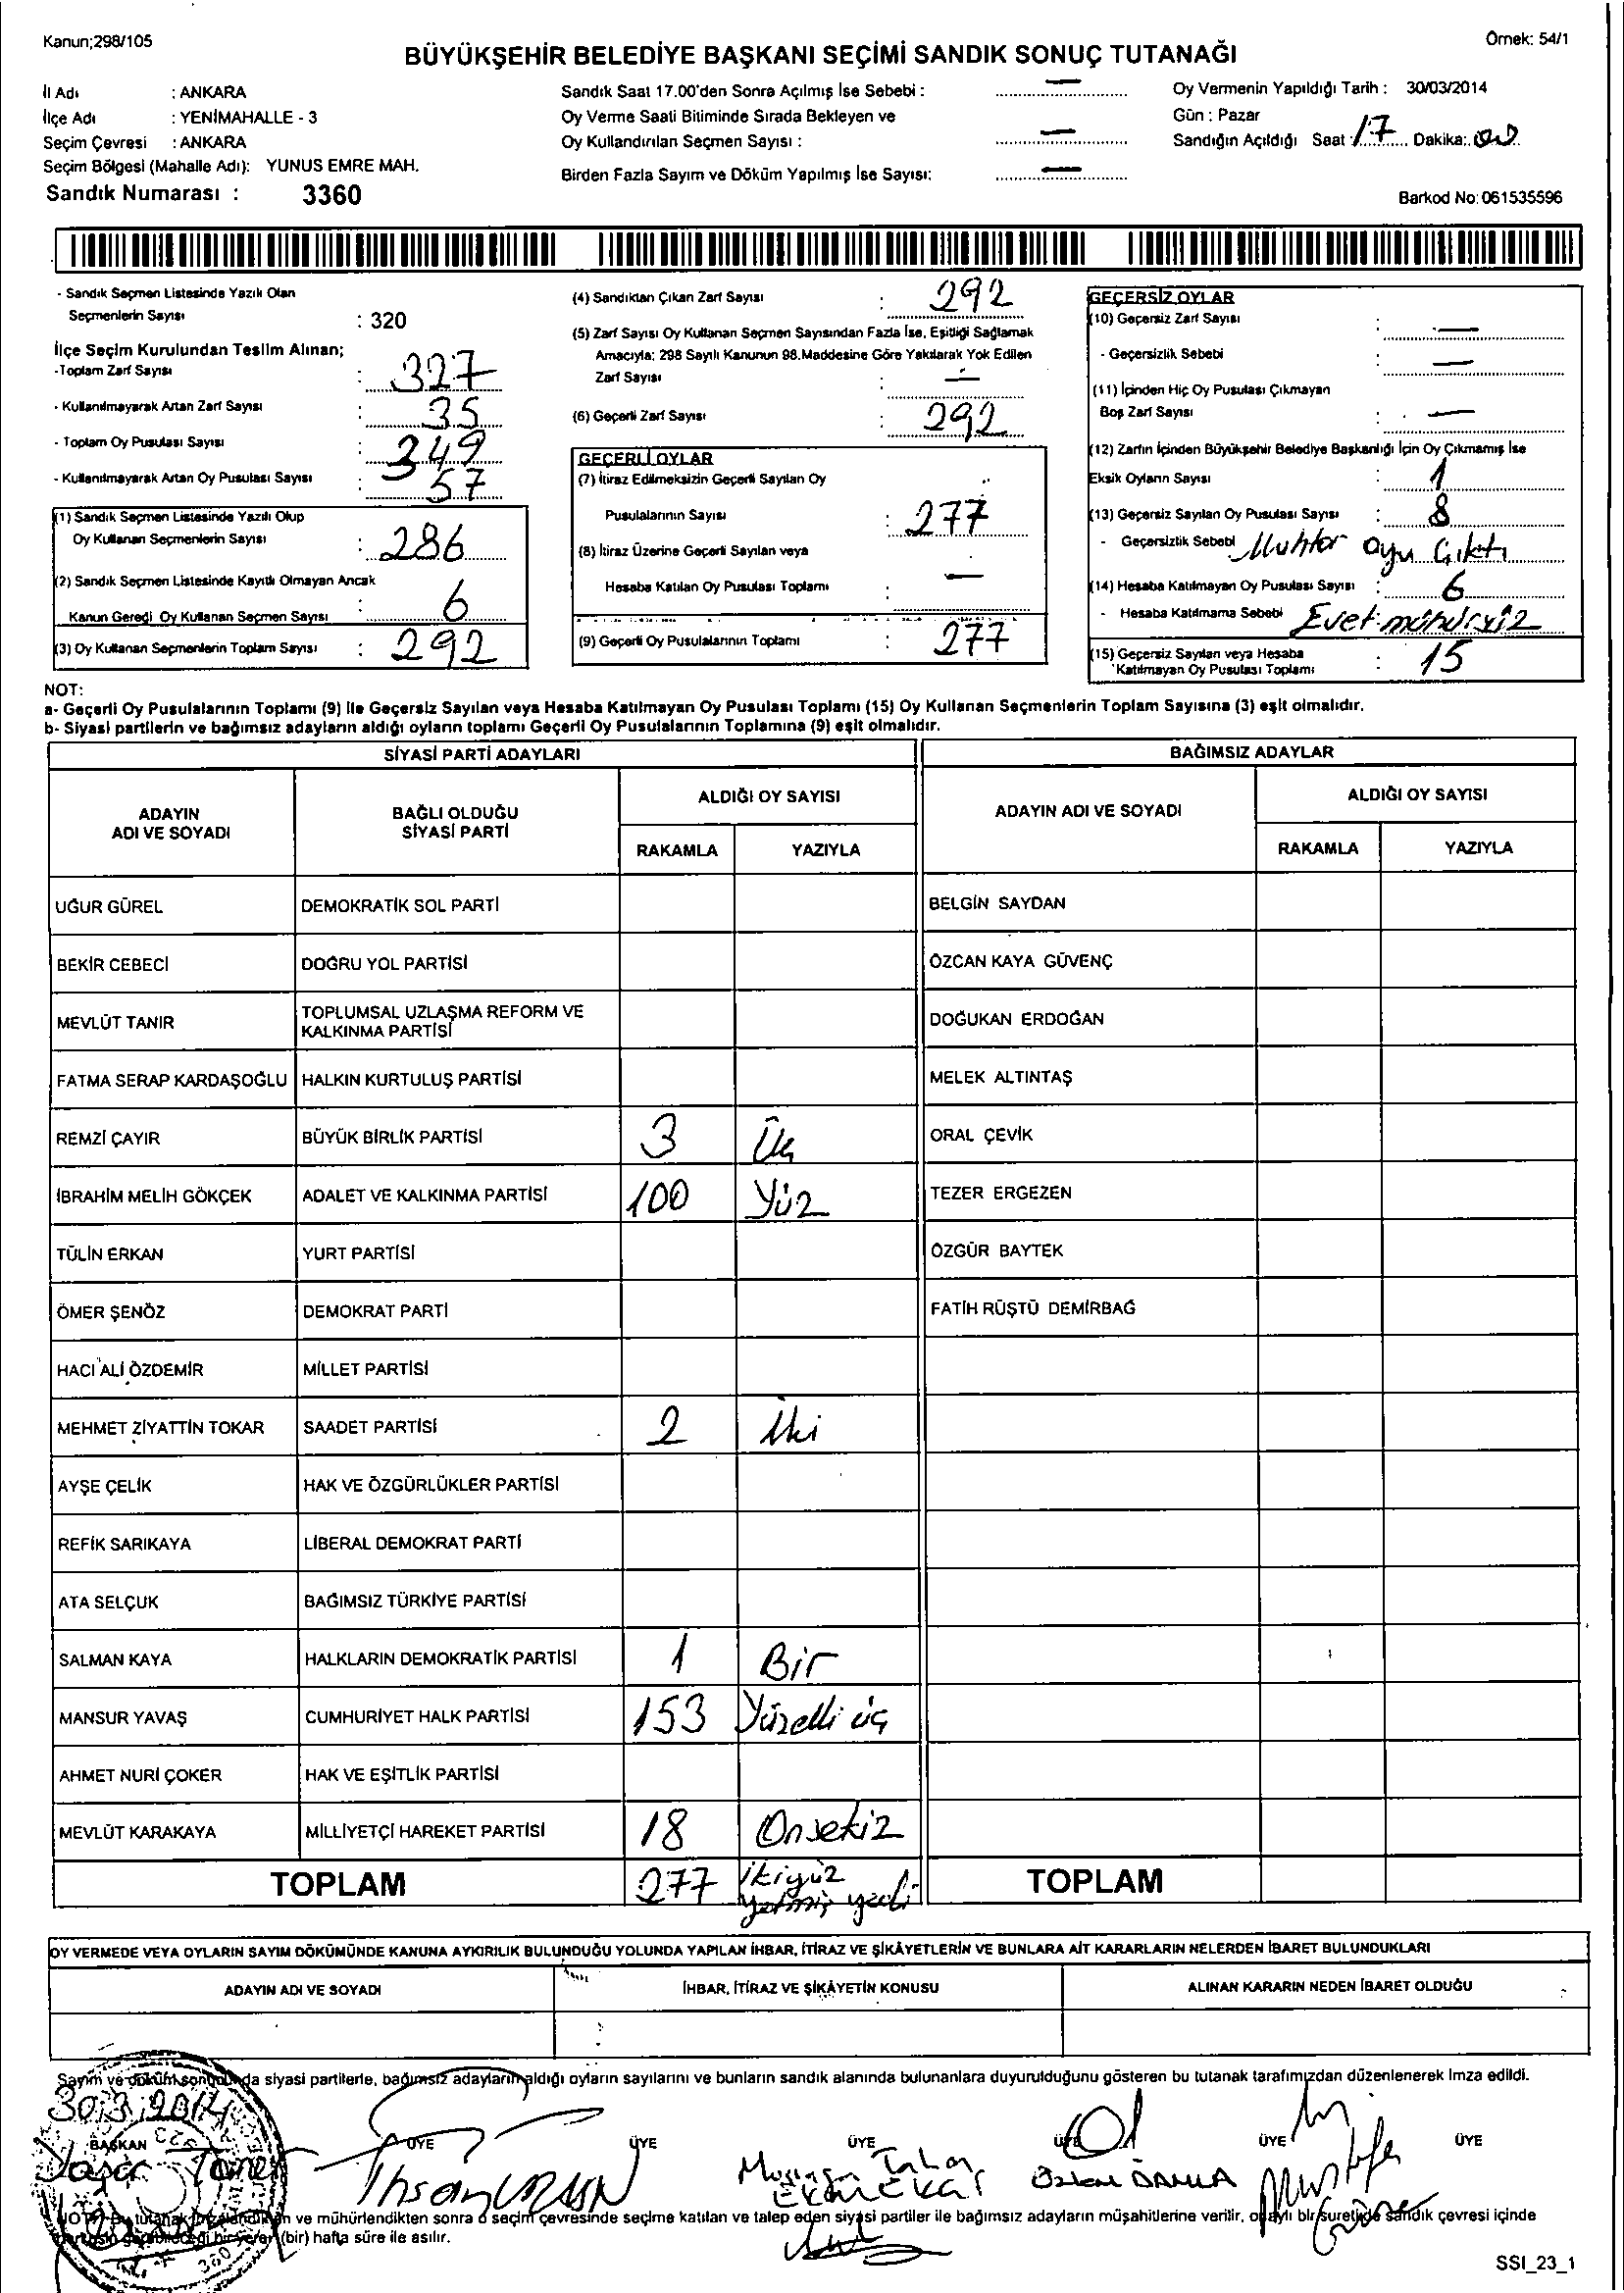 Kanun;298/105
Örnek: 54/1
BÜYÜKŞEHİR BELEDİYE BAŞKANI SEÇİMİ SANDIK SONUÇ TUTANAĞI
İl Adı : ANKARA
İlçe Adı : YENİMAHALLE - 3
Seçim Çevresi : ANKARA
Seçim Bölgesi (Mahalle Adı): YUNUS EMRE MAH.
Sandık Numarası : 3360
Sandık Saat 17.00'den Sonra Açılmış İse Sebebi : —
Oy Verme Saati Bitiminde Sırada Bekleyen ve
Oy Kullandırılan Seçmen Sayısı : —
Birden Fazla Sayım ve Döküm Yapılmış İse Sayısı: —
Oy Vermenin Yapıldığı Tarih : 30/03/2014
Gün : Pazar
Sandığın Açıldığı Saat : 17 Dakika: 00
Barkod No: 061535596
- Sandık Seçmen Listesinde Yazılı Olan
Seçmenlerin Sayısı : 320
İlçe Seçim Kurulundan Teslim Alınan;
-Toplam Zarf Sayısı : 327
- Kullanılmayarak Artan Zarf Sayısı : 35
- Toplam Oy Pusulası Sayısı : 349
- Kullanılmayarak Artan Oy Pusulası Sayısı : 57
(1) Sandık Seçmen Listesinde Yazılı Olup
Oy Kullanan Seçmenlerin Sayısı : 286
(2) Sandık Seçmen Listesinde Kayıtlı Olmayan Ancak
Kanun Gereği Oy Kullanan Seçmen Sayısı : 6
(3) Oy Kullanan Seçmenlerin Toplam Sayısı : 292
(4) Sandıktan Çıkan Zarf Sayısı : 292
(5) Zarf Sayısı Oy Kullanan Seçmen Sayısından Fazla İse, Eşitliği Sağlamak
Amacıyla; 298 Sayılı Kanunun 98.Maddesine Göre Yakılarak Yok Edilen
Zarf Sayısı : —
(6) Geçerli Zarf Sayısı : 292
GEÇERLİ OYLAR
(7) İtiraz Edilmeksizin Geçerli Sayılan Oy
Pusulalarının Sayısı : 277
(8) İtiraz Üzerine Geçerli Sayılan veya
Hesaba Katılan Oy Pusulası Toplamı : —
(9) Geçerli Oy Pusulalarının Toplamı : 277
GEÇERSİZ OYLAR
(10) Geçersiz Zarf Sayısı : —
- Geçersizlik Sebebi : —
(11) İçinden Hiç Oy Pusulası Çıkmayan
Boş Zarf Sayısı : —
(12) Zarfın İçinden Büyükşehir Belediye Başkanlığı İçin Oy Çıkmamış İse
Eksik Oyların Sayısı : 1
(13) Geçersiz Sayılan Oy Pusulası Sayısı : 8
- Geçersizlik Sebebi Muhtar oyu Çıktı
(14) Hesaba Katılmayan Oy Pusulası Sayısı : 6
- Hesaba Katılmama Sebebi Evet mühürsüz
(15) Geçersiz Sayılan veya Hesaba
Katılmayan Oy Pusulası Toplamı : 15
NOT:
a- Geçerli Oy Pusulalarının Toplamı (9) ile Geçersiz Sayılan veya Hesaba Katılmayan Oy Pusulası Toplamı (15) Oy Kullanan Seçmenlerin Toplam Sayısına (3) eşit olmalıdır.
b- Siyasi partilerin ve bağımsız adayların aldığı oyların toplamı Geçerli Oy Pusulalarının Toplamına (9) eşit olmalıdır.
SİYASİ PARTİ ADAYLARI BAĞIMSIZ ADAYLAR
ADAYIN ADI VE SOYADI BAĞLI OLDUĞU SİYASİ PARTİ ALDIĞI OY SAYISI ADAYIN ADI VE SOYADI ALDIĞI OY SAYISI
RAKAMLA YAZIYLA RAKAMLA YAZIYLA
UĞUR GÜREL DEMOKRATİK SOL PARTİ BELGİN SAYDAN
BEKİR CEBECİ DOĞRU YOL PARTİSİ ÖZCAN KAYA GÜVENÇ
MEVLÜT TANIR TOPLUMSAL UZLAŞMA REFORM VE KALKINMA PARTİSİ DOĞUKAN ERDOĞAN
FATMA SERAP KARDAŞOĞLU HALKIN KURTULUŞ PARTİSİ MELEK ALTINTAŞ
REMZİ ÇAYIR BÜYÜK BİRLİK PARTİSİ 3 Üç ORAL ÇEVİK
İBRAHİM MELİH GÖKÇEK ADALET VE KALKINMA PARTİSİ 100 Yüz TEZER ERGEZEN
TÜLİN ERKAN YURT PARTİSİ ÖZGÜR BAYTEK
ÖMER ŞENÖZ DEMOKRAT PARTİ FATİH RÜŞTÜ DEMİRBAĞ
HACI ALİ ÖZDEMİR MİLLET PARTİSİ
MEHMET ZİYATTİN TOKAR SAADET PARTİSİ 2 İki
AYŞE ÇELİK HAK VE ÖZGÜRLÜKLER PARTİSİ
REFİK SARIKAYA LİBERAL DEMOKRAT PARTİ
ATA SELÇUK BAĞIMSIZ TÜRKİYE PARTİSİ
SALMAN KAYA HALKLARIN DEMOKRATİK PARTİSİ 1 Bir
MANSUR YAVAŞ CUMHURİYET HALK PARTİSİ 153 Yüzelli üç
AHMET NURİ ÇOKER HAK VE EŞİTLİK PARTİSİ
MEVLÜT KARAKAYA MİLLİYETÇİ HAREKET PARTİSİ 18 Onsekiz
TOPLAM 277 ikiyüz yetmiş yedi TOPLAM
OY VERMEDE VEYA OYLARIN SAYIM DÖKÜMÜNDE KANUNA AYKIRILIK BULUNDUĞU YOLUNDA YAPILAN İHBAR, İTİRAZ VE ŞİKÂYETLERİN VE BUNLARA AİT KARARLARIN NELERDEN İBARET BULUNDUKLARI
ADAYIN ADI VE SOYADI İHBAR, İTİRAZ VE ŞİKÂYETİN KONUSU ALINAN KARARIN NEDEN İBARET OLDUĞU
Sayım ve döküm sonucunda siyasi partilerle, bağımsız adayların aldığı oyların sayılarını ve bunların sandık alanında bulunanlara duyurulduğunu gösteren bu tutanak tarafımızdan düzenlenerek imza edildi.
30.3.2014
BAŞKAN ÜYE ÜYE ÜYE ÜYE ÜYE ÜYE
Yaşar Taner
İhsan
Özlem DAMLA
Mustafa
ve mühürlendikten sonra o seçim çevresinde seçime katılan ve talep eden siyasi partiler ile bağımsız adayların müşahitlerine verilir, onaylı bir suretide sandık çevresi içinde
(bir) hafta süre ile asılır.
SSI_23_1